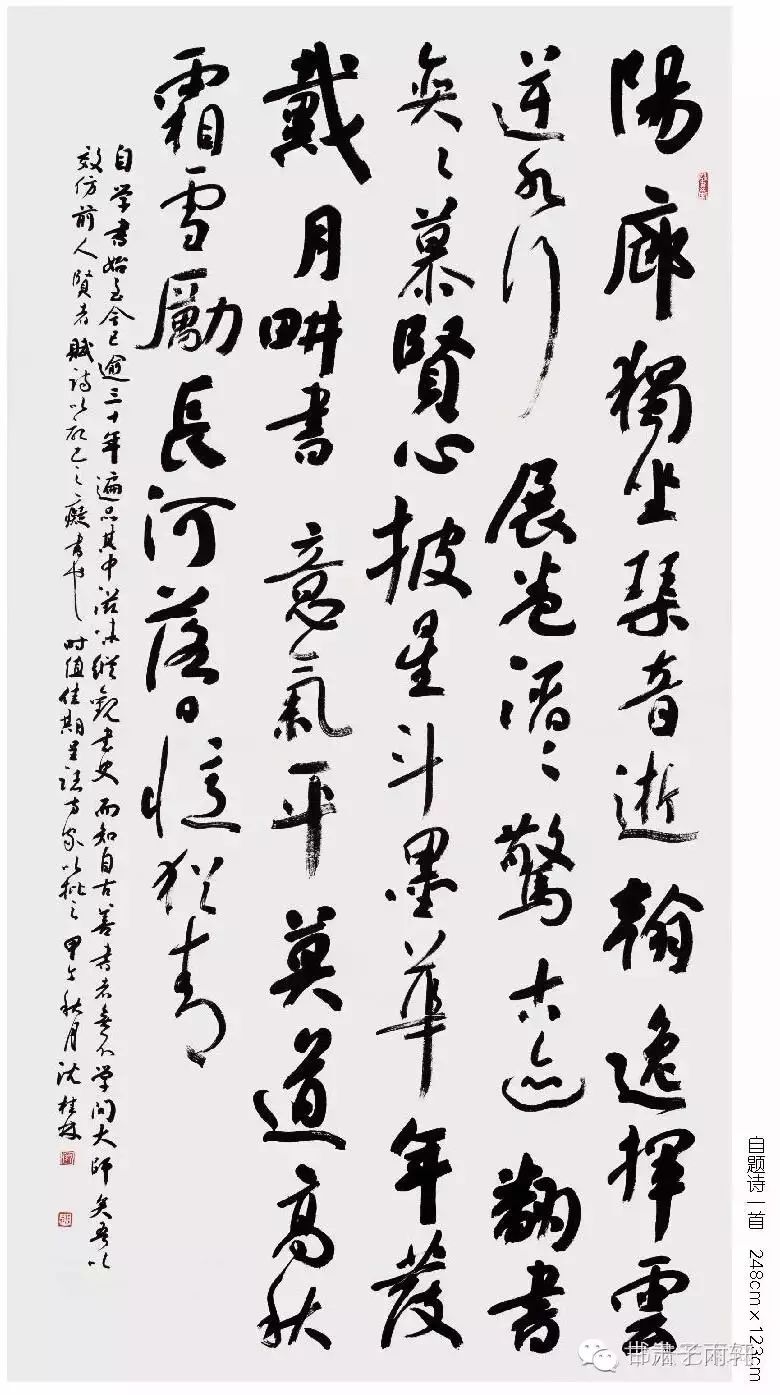 陽廊獨坐琴音逝翰逸揮雲
逆水行展卷潛〻驚古迹翻書
奕〻慕賢心披星斗墨華年髮
戴月畊書意氣平莫道高秋
霜雪勵長河落日憶猶青
自学書始至今已逾三十年遍品其中滋味縱觀書史而知自古善書者無不学问大師矣吾以
效仿前人賢者賦詩以 己之癡書也时值佳期呈請方家以批之甲午秋月沈桂林
自题诗一首 248cm×123cm
肃子雨轩